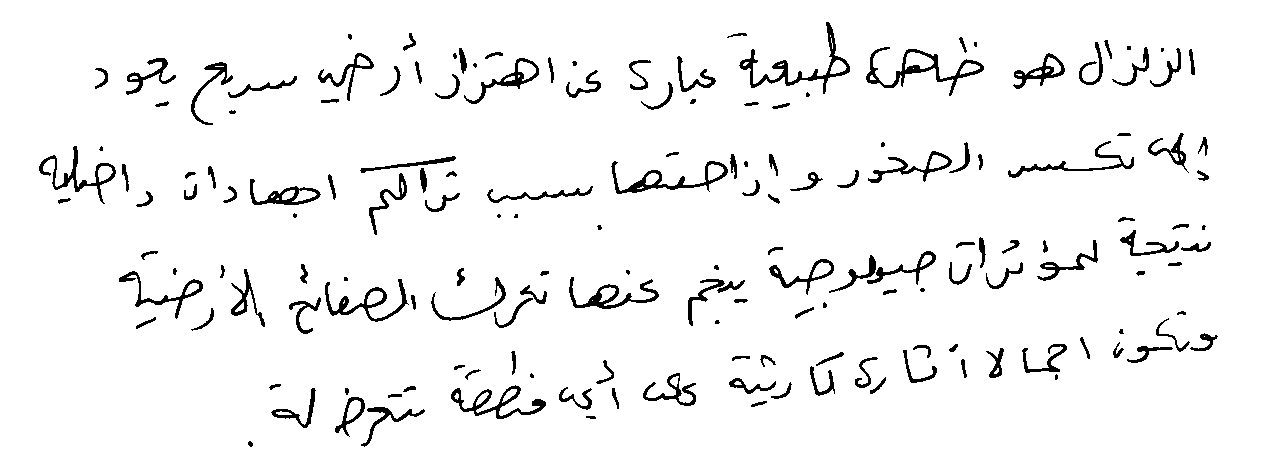 الزلزال هو ظاهرة طبيعية عبارة عن اهتزاز أرضي سريع يعود
إلى تكسر الصخور وإزاحتها بسبب تراكم اجهادات داخلية
نتيجة لمؤثرات جيولوجية ينجم عنها تحرك الصفائح الأرضية
وتكون اجمالا أثاره كارثية على أي منطقة تتعرض له .